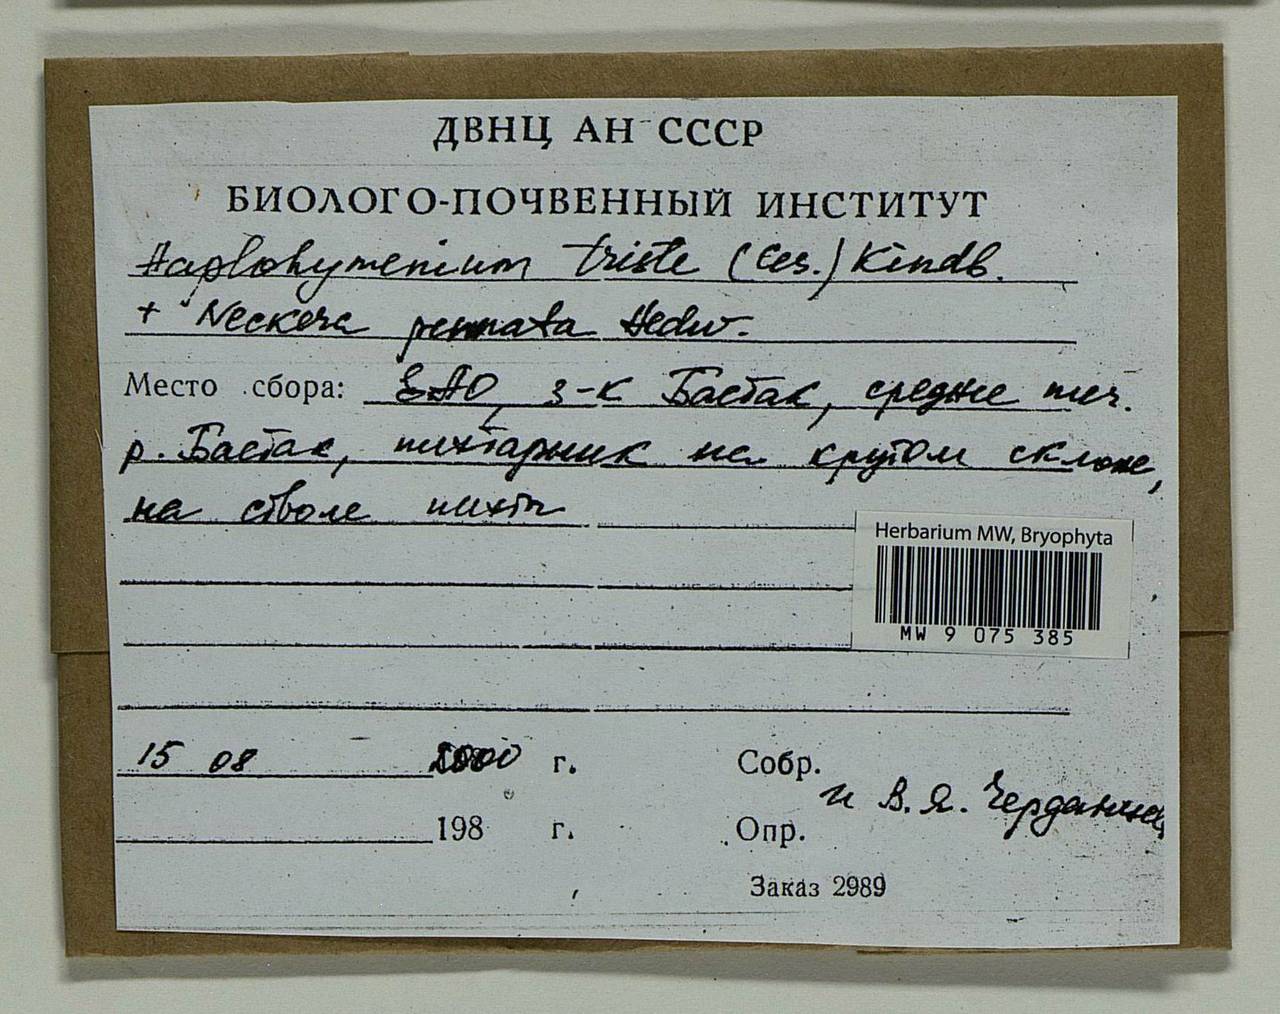 ДВНЦ АН СССР
БИОЛОГО-ПОЧВЕННЫЙ ИНСТИТУТ
Haplohymenium triste (Ces.) Kindb.
+ Neckera pennata Hedw.
Место сбора: ЕАО, з-к Бастак, средне теч.
р. Бастак, пихтарник на крутом склоне,
на стволе пихты
Herbarium MW, Bryophyta
MW 9 075 385
15 08 2000 г. Собр.
и В. Я. Черданцева
198 г. Опр.
Заказ 2989